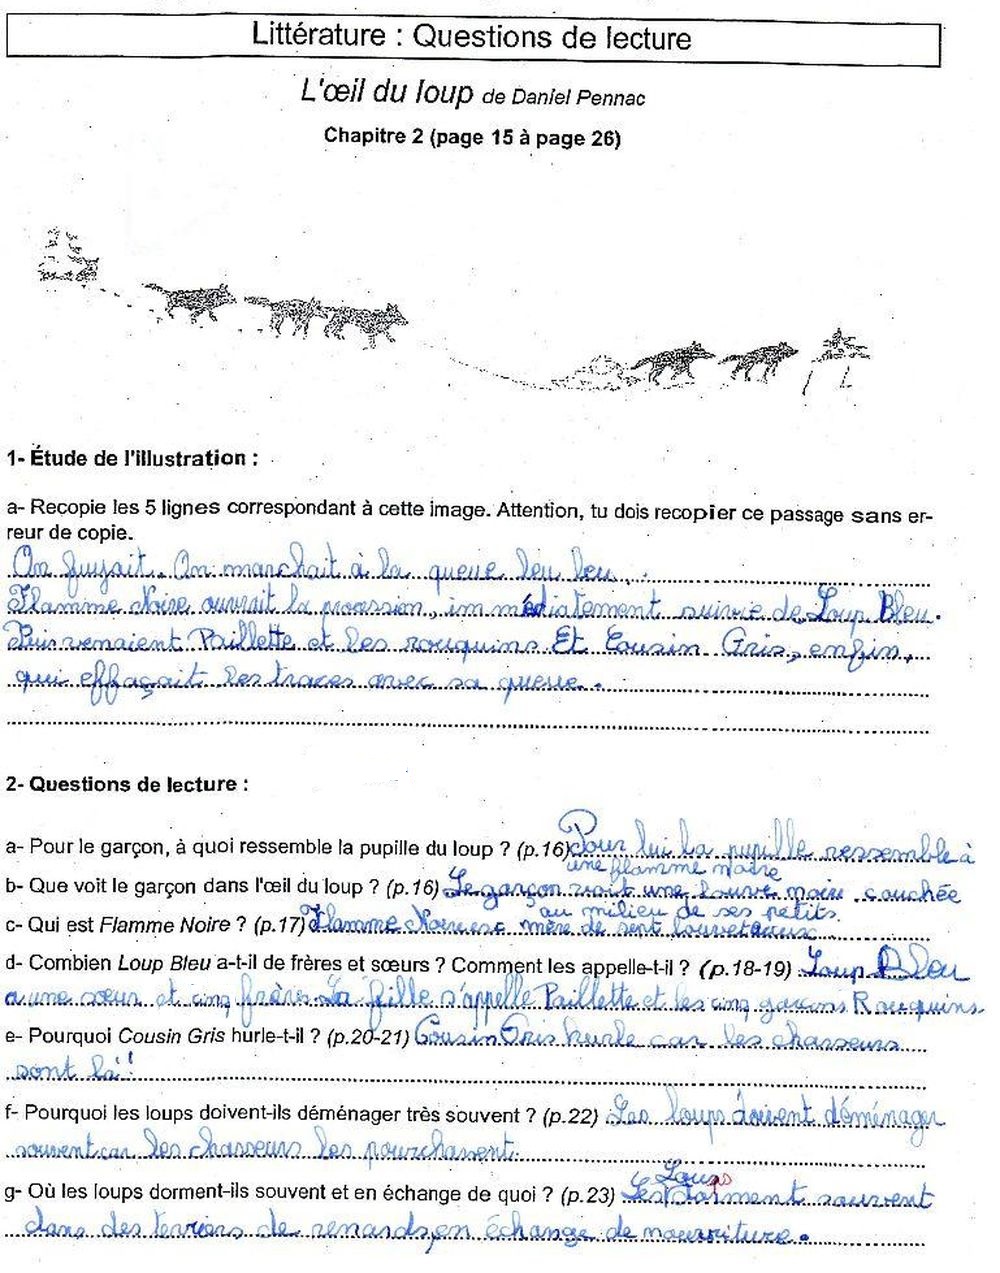 Littérature : Questions de lecture
L'œil du loup de Daniel Pennac
Chapitre 2 (page 15 à page 26)
1- Étude de l'illustration :
a- Recopie les 5 lignes correspondant à cette image. Attention, tu dois recopier ce passage sans er-
reur de copie.
On fuyait. On marchait à la queue leu leu.
Flamme Noire ouvrait la procession, immédiatement suivie de Loup Bleu.
Puis venaient Paillette et les rouquins Et Cousin Gris, enfin,
qui effaçait les traces avec sa queue.
2- Questions de lecture :
a- Pour le garçon, à quoi ressemble la pupille du loup ? (p.16) Pour lui la pupille ressemble à
une flamme noire
b- Que voit le garçon dans l'œil du loup ? (p.16) Le garçon voit une louve noire couchée
au milieu de ses petits.
c- Qui est Flamme Noire ? (p.17) Flamme Noire est mère de sept louveteaux
d- Combien Loup Bleu a-t-il de frères et sœurs ? Comment les appelle-t-il ? (p.18-19) Loup Bleu
a une sœur et cinq frères. La fille s'appelle Paillette et les cinq garçons Rouquins
e- Pourquoi Cousin Gris hurle-t-il ? (p.20-21) Cousin Gris hurle car les chasseurs
sont là !
f- Pourquoi les loups doivent-ils déménager très souvent ? (p.22) Les loups doivent déménager
souvent car les chasseurs les pourchassent.
g- Où les loups dorment-ils souvent et en échange de quoi ? (p.23) Les Loups dorment souvent
dans des terriers de renards, en échange de nourriture.